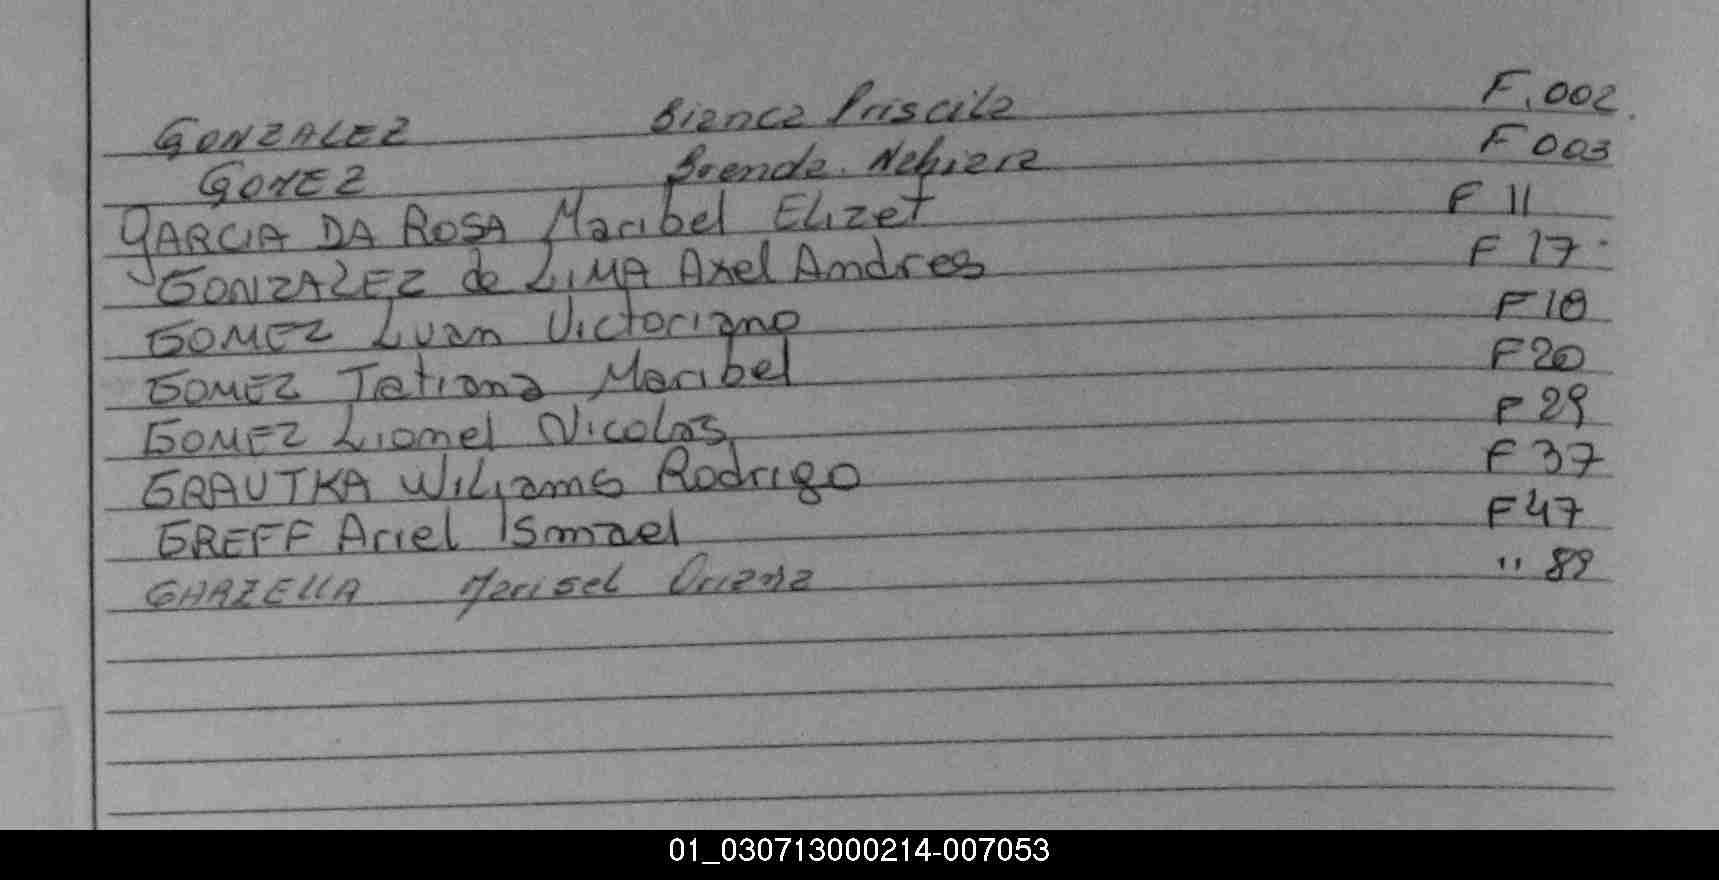 GONZALEZ Bianca Priscila F.002.
GOMEZ Brenda Nahiara F 003
GARCIA DA ROSA Maribel Elizet F 11
GONZALEZ de LIMA Axel Andres F 17
GOMEZ Luan Victoriano F18
GOMEZ Tatiana Maribel F20
GOMEZ Lionel Nicolas F 29
GRAUTKA Wiliams Rodrigo F 37
GREFF Ariel Ismael F47
Marisel Oriana " 89
01_030713000214-007053